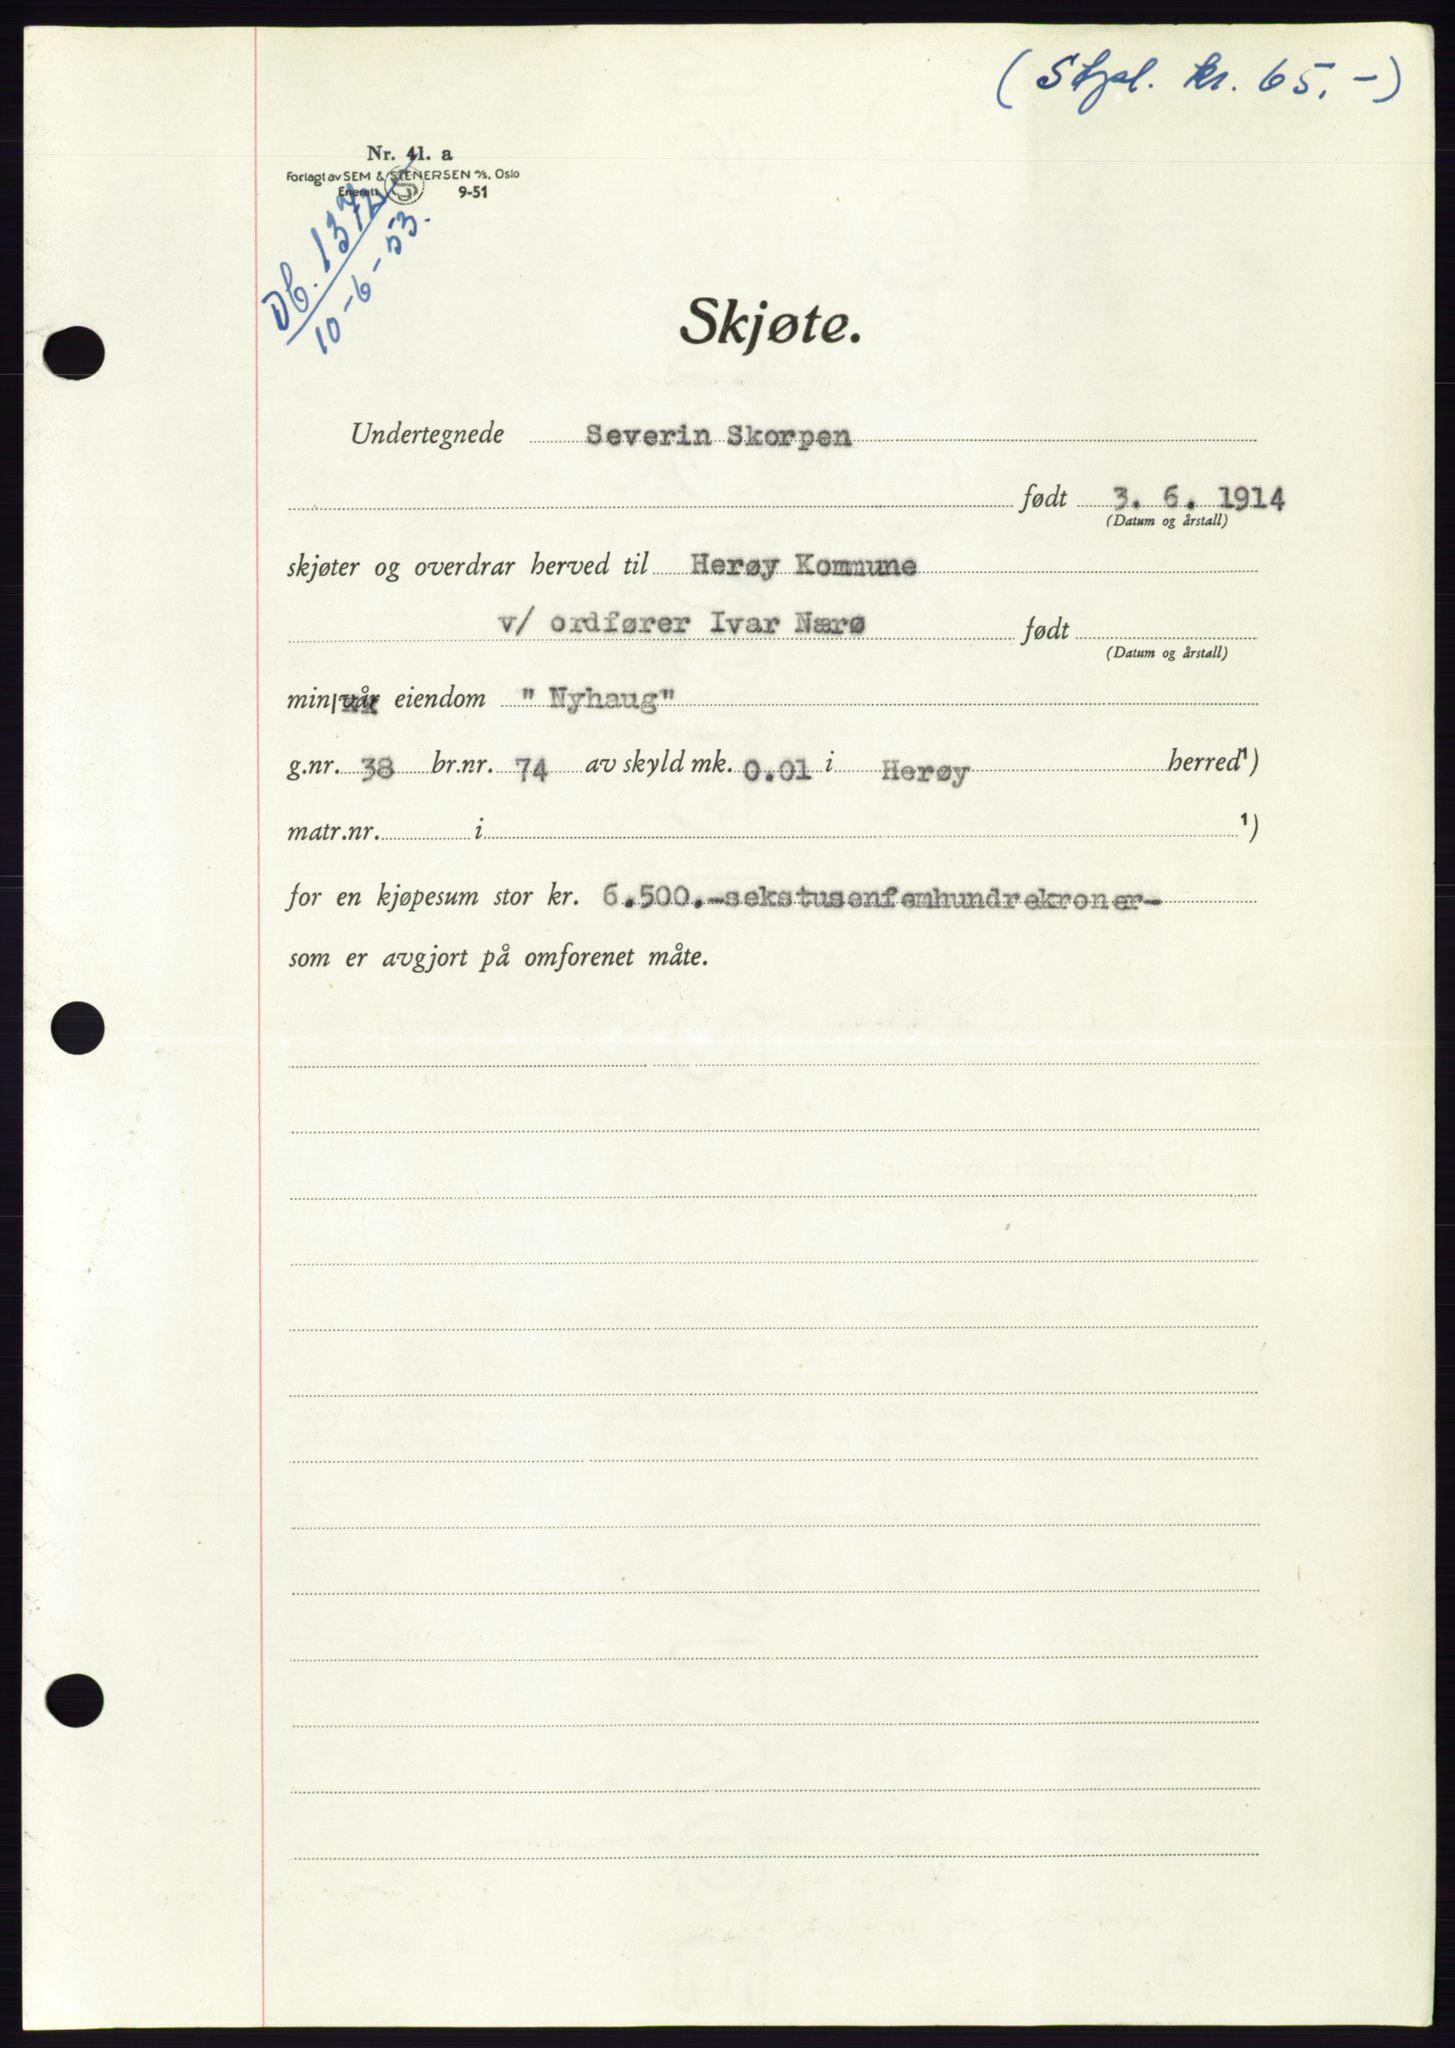 (Stpl. kr. 65.-)
Nr. 41. a
Forlagt av SEM & STENERSEN A/S, Oslo
Enerett S 9-51
Db. 1372
10-6-53.
Skjøte.
Undertegnede Severin Skorpen
født 3. 6. 1914
(Datum og årstall)
skjøter og overdrar herved til Herøy Kommune
v/ ordfører Ivar Nærø født
(Datum og årstall)
min/vår eiendom "Nyhaug"
g.nr. 38 br.nr. 74 av skyld mk. 0.01 i Herøy herred¹)
matr.nr. i ¹)
for en kjøpesum stor kr. 6.500.-sekstusenfemhundrekroner-
som er avgjort på omforenet måte.